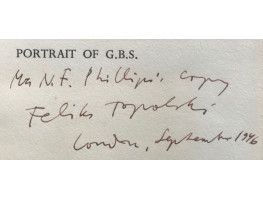 PORTRAIT OF G.B.S.
Mr N.F. Phillips's copy
Feliks Topolski
London, September 1946